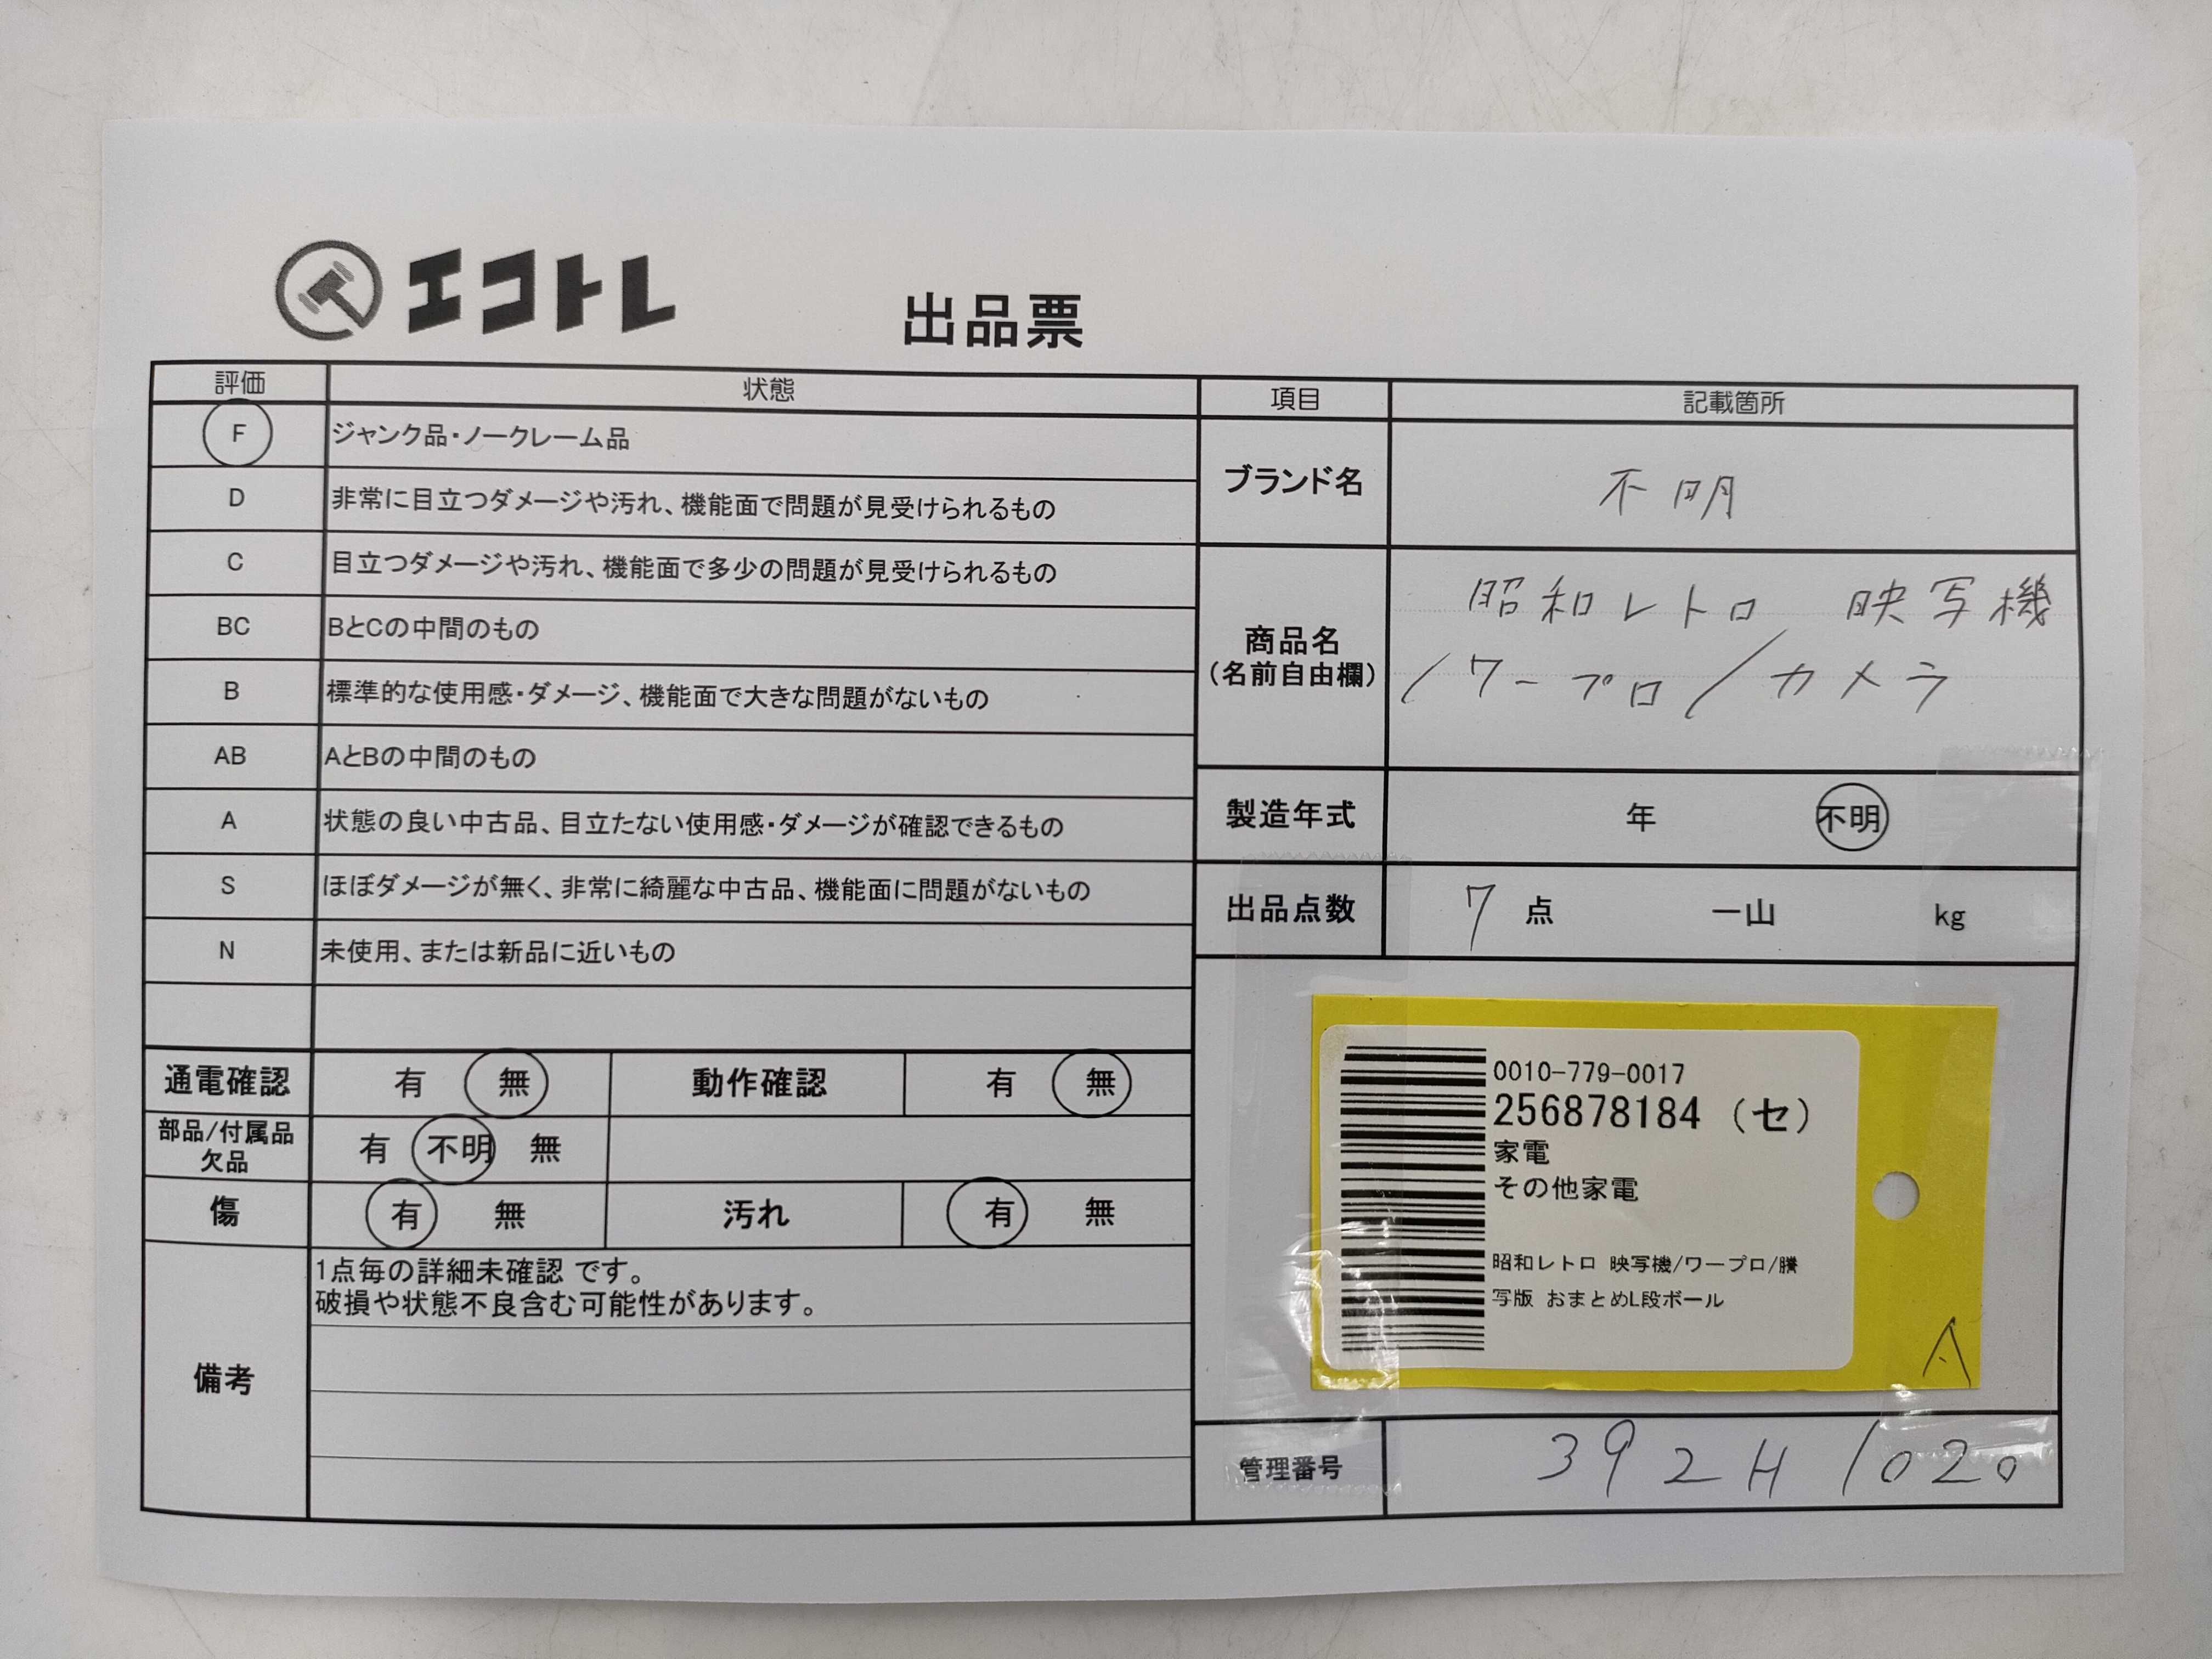 エコトレ
出品票
評価 状態
F ジャンク品・ノークレーム品
D 非常に目立つダメージや汚れ、機能面で問題が見受けられるもの
C 目立つダメージや汚れ、機能面で多少の問題が見受けられるもの
BC BとCの中間のもの
B 標準的な使用感・ダメージ、機能面で大きな問題がないもの
AB AとBの中間のもの
A 状態の良い中古品、目立たない使用感・ダメージが確認できるもの
S ほぼダメージが無く、非常に綺麗な中古品、機能面に問題がないもの
N 未使用、または新品に近いもの
通電確認 有 無 動作確認 有 無
部品/付属品
欠品 有 不明 無
傷 有 無 汚れ 有 無
備考
1点毎の詳細未確認 です。
破損や状態不良含む可能性があります。
項目 記載箇所
ブランド名 不明
商品名
(名前自由欄)
昭和レトロ 映写機
/ワープロ/カメラ
製造年式 年 不明
出品点数 7 点 一山 kg
0010-779-0017
256878184 (セ)
家電
その他家電
昭和レトロ 映写機/ワープロ/騰
写版 おまとめL段ボール
A
管理番号 392H1020